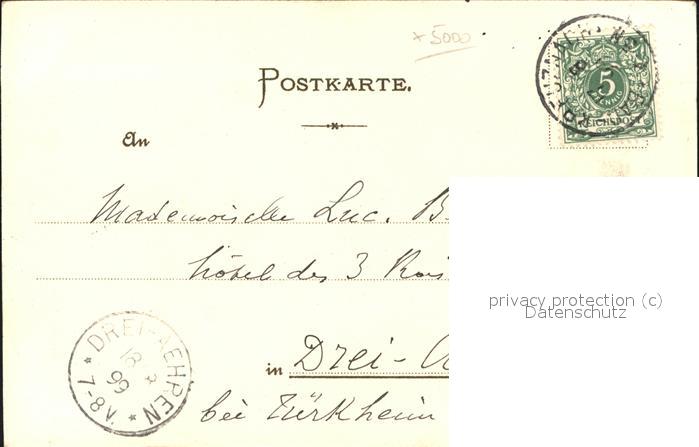 * 5000
POSTKARTE.
5
PFENNIG
REICHSPOST
An
Mademoiselle Luc. B
hôtel des 3 Rois
privacy protection (c)
Datenschutz
in Drei-A
bei Türkheim
* DREI-AEHREN *
18
99
7-8 V.